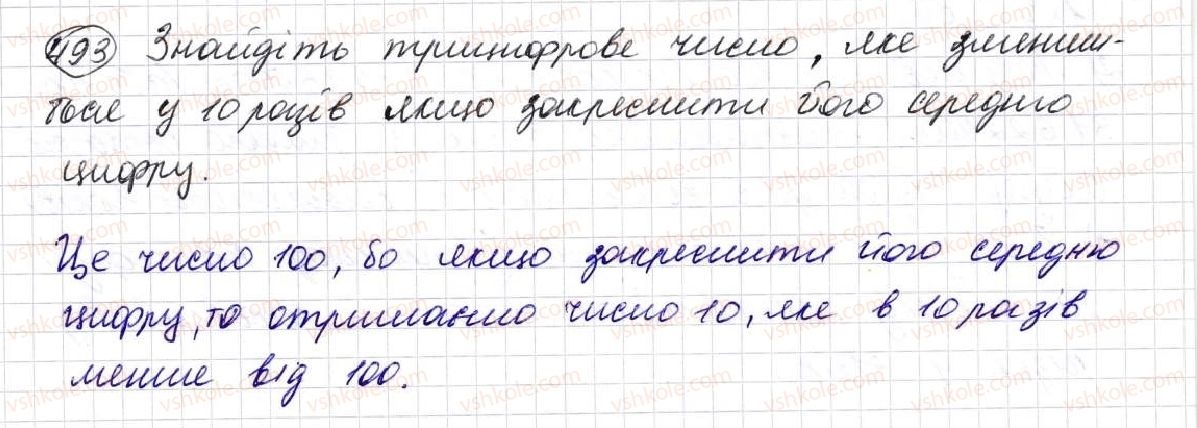 493 Знайдіть трицифрове число, яке зменши-
ться у 10 разів якщо закреслити його середню
цифру.
Це число 100, бо якщо закреслити його середню
цифру, то отримаємо число 10, яке в 10 разів
менше від 100.